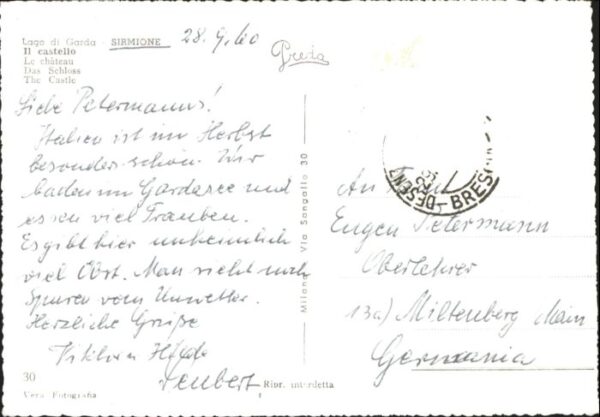 Lago di Garda - SIRMIONE 28.9.60
Il castello
Le château
Das Schloss
The Castle
Preda
Liebe Petermanns!
Italien ist im Herbst
besonders schön. Wir
baden im Gardasee und
essen viel Trauben.
Es gibt hier unheimlich
viel Obst. Man sieht noch
Spuren vom Unwetter.
Herzliche Grüße
Neubert
30
Vera Fotografia
Ripr. interdetta
Milano Via Sangallo 30
DESENZ BRESCIA
An Fam.
Eugen Petermann
Oberlehrer
13a) Miltenberg Main
Germania